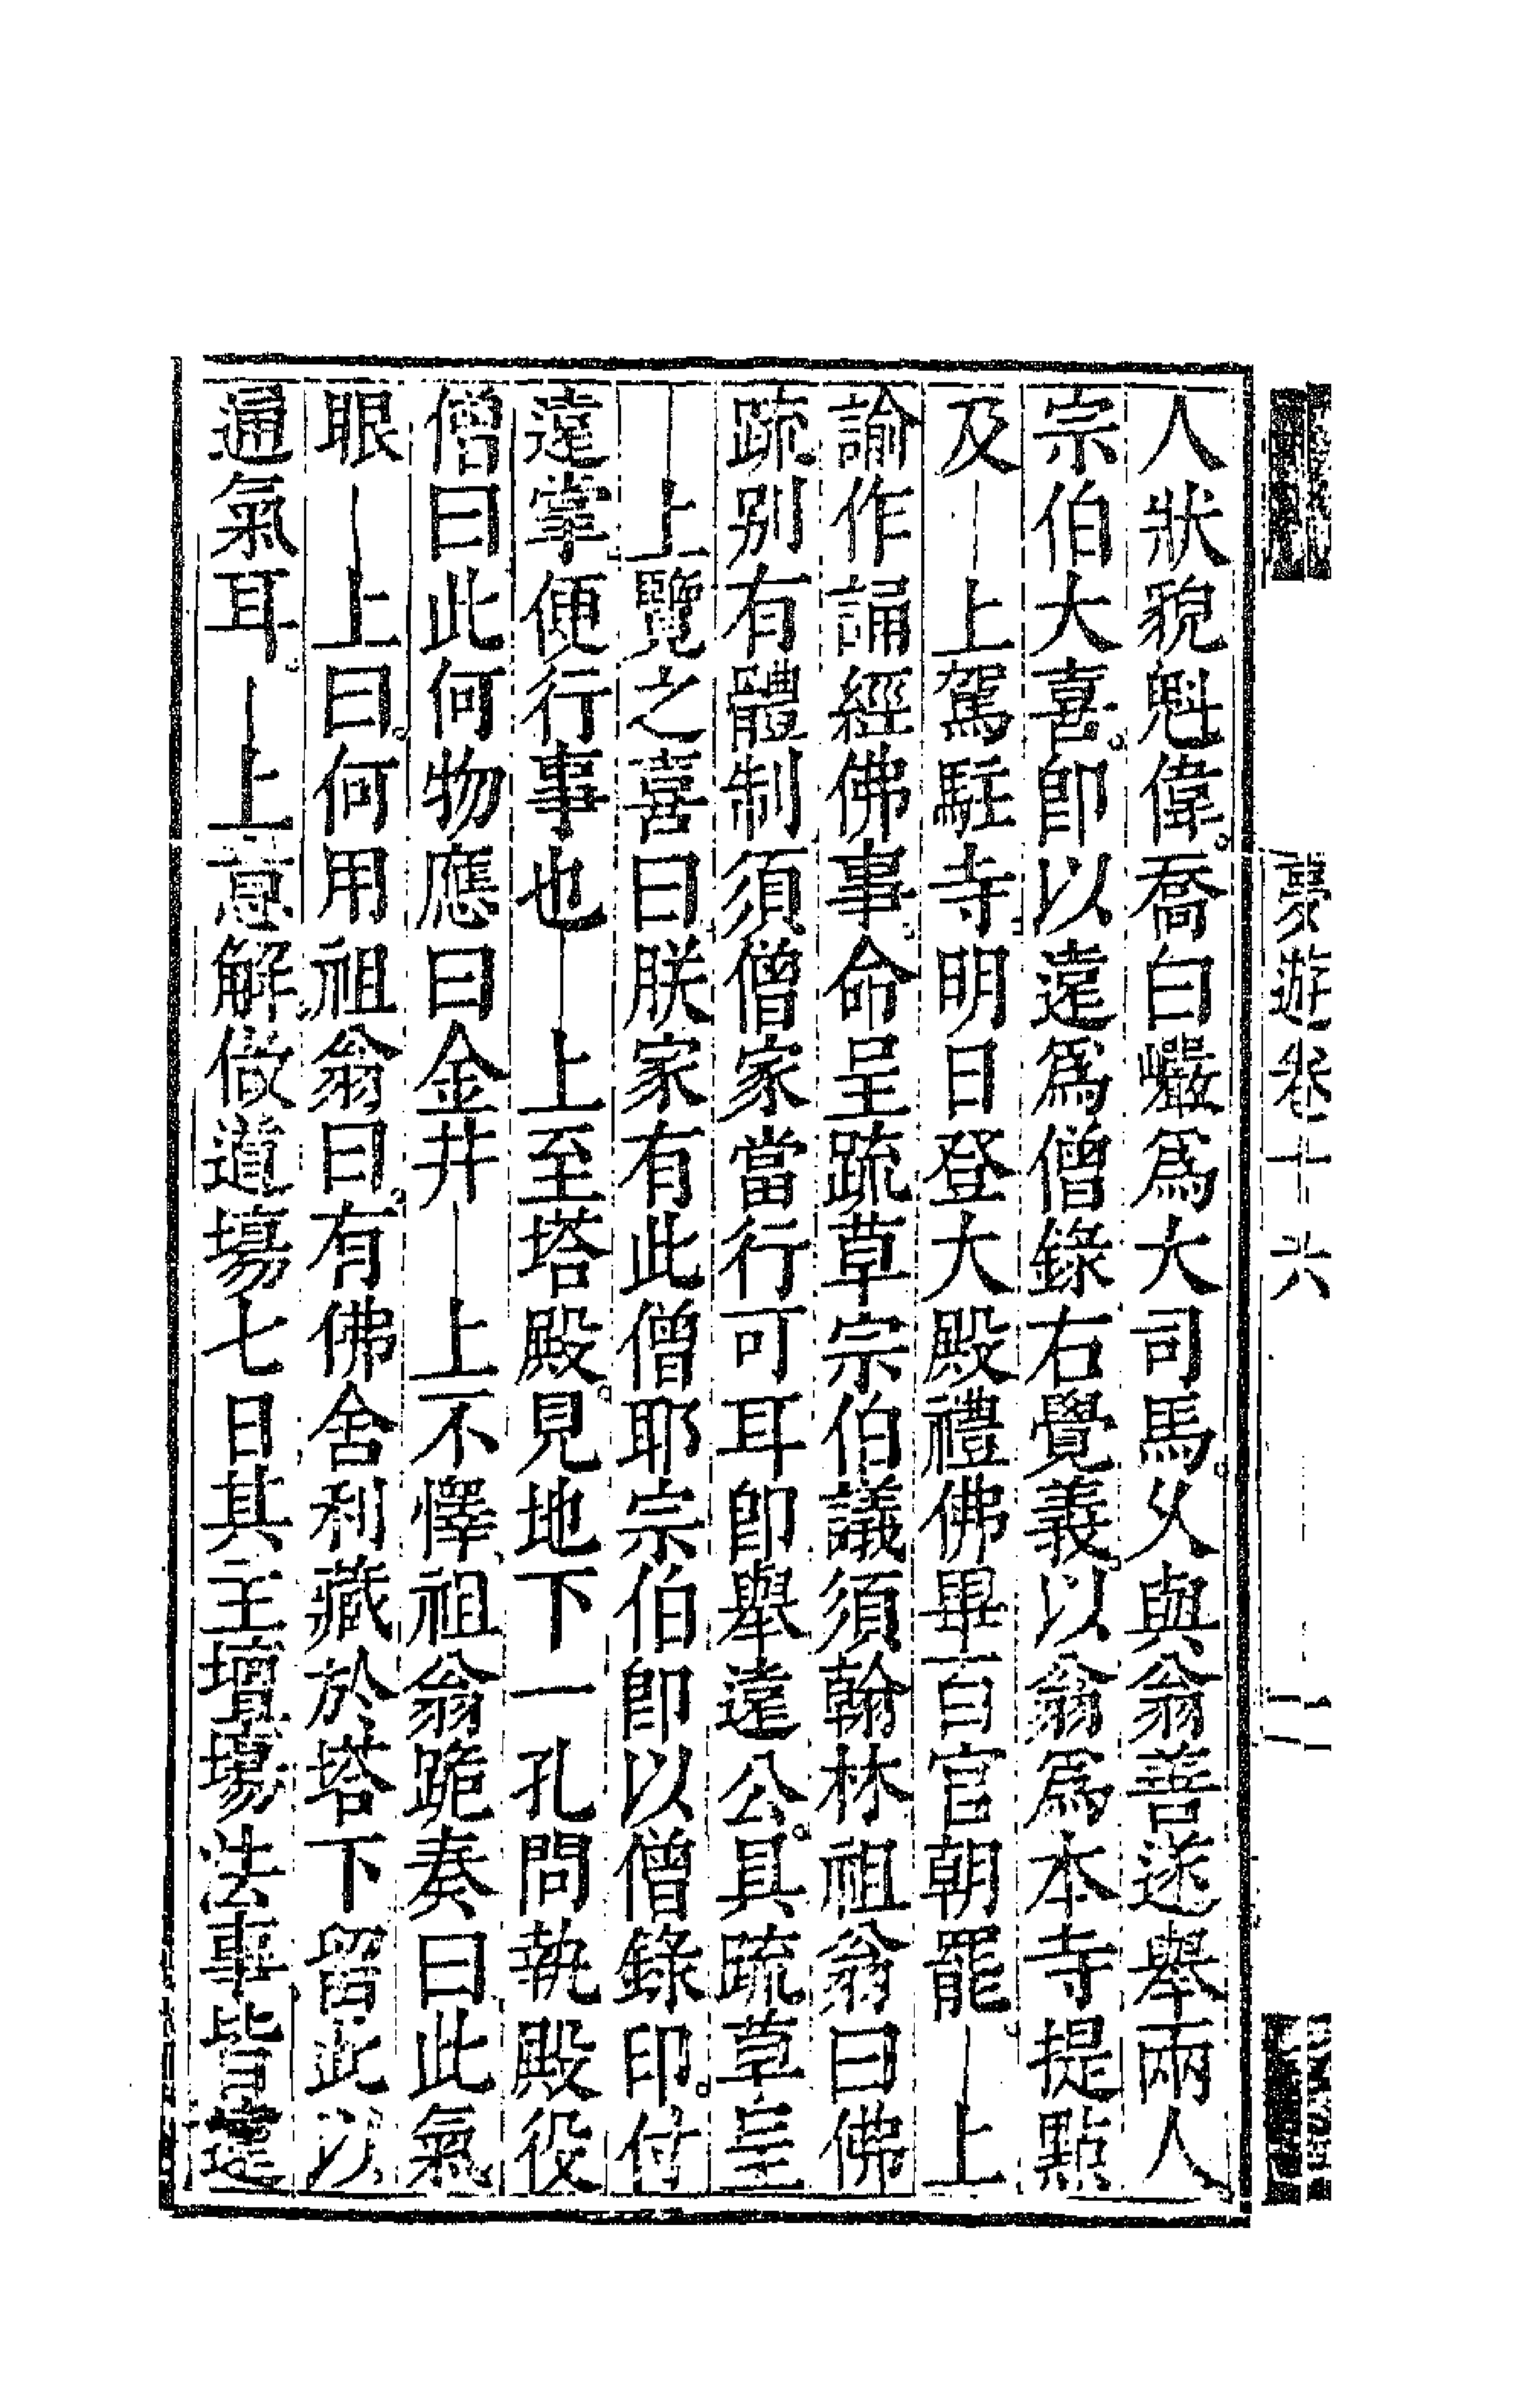 夢遊卷十六 二
人狀貌魁偉喬白巖爲大司馬久與翁善遂舉兩人
宗伯大喜卽以遠爲僧錄右覺義以翁爲本寺提點
及上駕駐寺明日登大殿禮佛畢百官朝罷上
諭作誦經佛事命呈疏草宗伯議須翰林祖翁曰佛
疏別有體制須僧家當行可耳卽舉遠公具疏草呈
上覽之喜曰朕家有此僧耶宗伯卽以僧錄印付
遠掌便行事也上至塔殿見地下一孔問執殿役
僧曰此何物應曰金井上不懌祖翁跪奏曰此氣
眼上曰何用祖翁曰有佛舍利藏於塔下留此以
通氣耳上意解做道場七日其主壇場法事皆遠